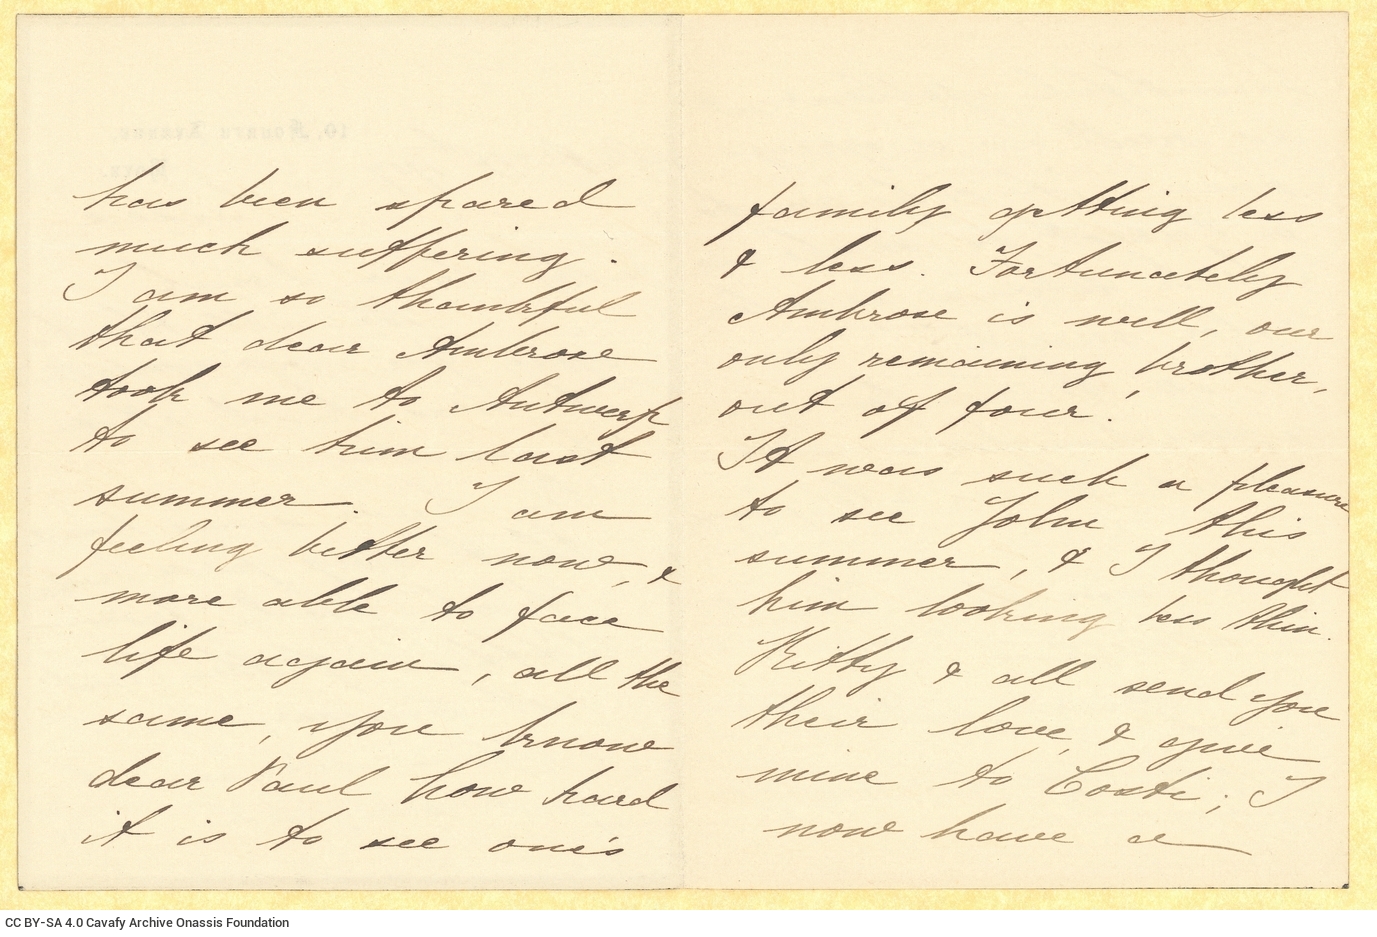 has been spared
much suffering.
I am so thankful
that dear Ambrose
took me to Antwerp
to see him last
summer. I am
feeling better now, &
more able to face
life again, all the
same, you know
dear Paul how hard
it is to see one's
family getting less
& less. Fortunately
Ambrose is well, our
only remaining brother,
out of four!
It was such a pleasure
to see John this
summer, & I thought
him looking less thin.
Kitty & all send you
their love, & give
mine to Costi; I
now have a
CC BY-SA 4.0 Cavafy Archive Onassis Foundation